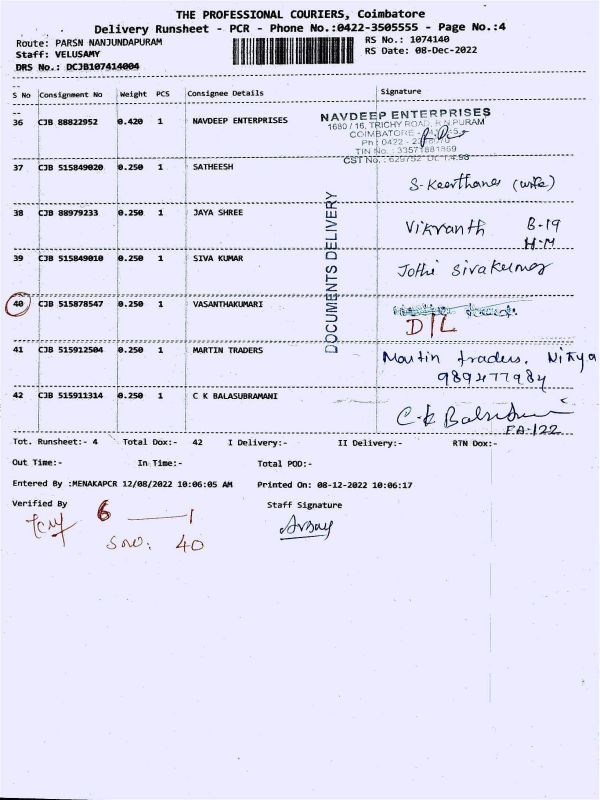 THE PROFESSIONAL COURIERS, Coimbatore
Delivery Runsheet - PCR - Phone No.:0422-3505555 - Page No.:4
Route: PARSN NANJUNDAPURAM RS No.: 1074140
Staff: VELUSAMY RS Date: 08-Dec-2022
DRS No.: DCJB107414004
S No Consignment No Weight PCS Consignee Details Signature
36 CJB 88822952 0.420 1 NAVDEEP ENTERPRISES
NAVDEEP ENTERPRISES
1680 / 16, TRICHY ROAD, R.N.PURAM
COIMBATORE -
Ph : 0422 -
TIN No. : 33571881869
CST No. : 629752 Dt. 1.4.98
37 CJB 515849020 0.250 1 SATHEESH S. Keerthana (wife)
38 CJB 88979233 0.250 1 JAYA SHREE Vikranth B-19
H-M
39 CJB 515849010 0.250 1 SIVA KUMAR Jothi Sivakumar
DOCUMENTS DELIVERY
40 CJB 515878547 0.250 1 VASANTHAKUMARI
D/L
41 CJB 515912504 0.250 1 MARTIN TRADERS Martin traders. Nitya
989477984
42 CJB 515911314 0.250 1 C K BALASUBRAMANI C.K
FA-122
Tot. Runsheet:- 4 Total Dox:- 42 I Delivery:- II Delivery:- RTN Dox:-
Out Time:- In Time:- Total POD:-
Entered By :MENAKAPCR 12/08/2022 10:06:05 AM Printed On: 08-12-2022 10:06:17
Verified By Staff Signature
6 — 1
S.no: 40